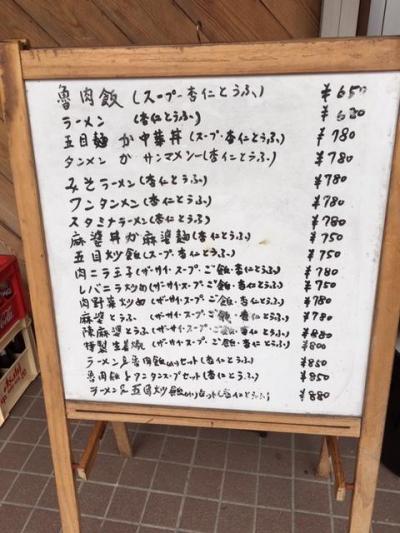 魯肉飯 (スープ・杏仁とうふ) ¥650
ラーメン (杏仁とうふ) ¥680
五目麺か中華丼 (スープ・杏仁とうふ) ¥780
タンメンかサンマメン (杏仁とうふ) ¥780
みそラーメン (杏仁とうふ) ¥780
ワンタンメン (杏仁とうふ) ¥780
スタミナラーメン (杏仁とうふ) ¥780
麻婆丼か麻婆麺 (杏仁とうふ) ¥750
五目炒飯 (スープ・杏仁とうふ) ¥750
肉ニラ玉子 (ザーサイ・スープ・ご飯・杏仁とうふ) ¥780
レバニラ炒め (ザーサイ・スープ・ご飯・杏仁とうふ) ¥750
肉野菜炒め (ザーサイ・スープ・ご飯・杏仁とうふ) ¥780
麻婆とうふ (ザーサイ・スープ・ご飯・杏仁とうふ) ¥780
陳麻婆とうふ (ザーサイ・スープ・ご飯・杏仁とうふ) ¥880
特製生姜焼 (ザーサイ・スープ・ご飯・杏仁とうふ) ¥800
ラーメンと魯肉飯セット (杏仁とうふ) ¥850
魯肉飯とワンタンスープセット (杏仁とうふ) ¥850
ラーメンと五目炒飯セット (杏仁とうふ) ¥880
Asahi